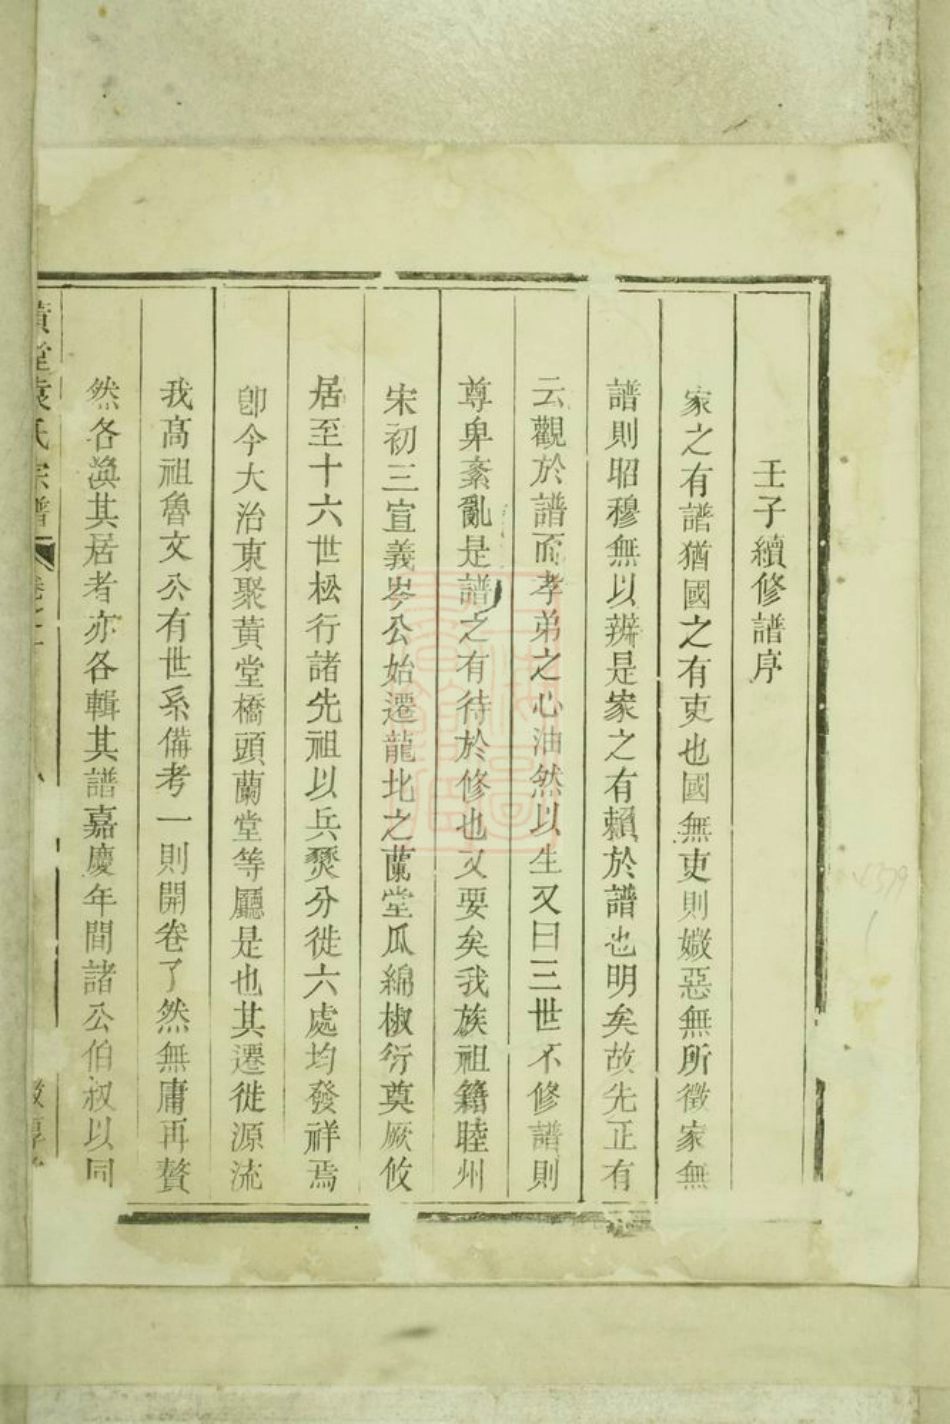 壬子續修譜序
家之有譜猶國之有吏也國無吏則媺惡無所徵家無
譜則昭穆無以辨是家之有賴於譜也明矣故先正有
云觀於譜而孝弟之心油然以生又曰三世不修譜則
尊卑紊亂是譜之有待於修也又要矣我族祖籍睦州
宋初三宣義岑公始遷龍北之蘭堂瓜綿椒衍奠厥攸
居至十六世松行諸先祖以兵燹分徙六處均發祥焉
卽今大治東聚黃堂橋頭蘭堂等廳是也其遷徙源流
我高祖魯文公有世系備考一則開卷了然無庸再贅
然各渙其居者亦各輯其譜嘉慶年間諸公伯叔以同
黃堂袁氏宗譜 卷之